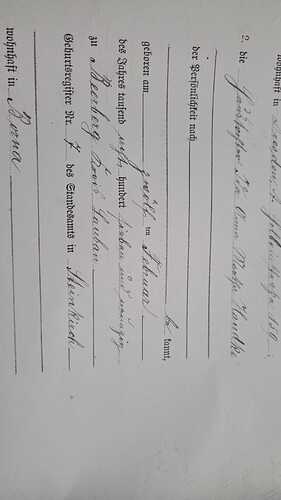 wohnhaft in Dresden, Holbeinstraße
2. die Haustochter Anna Martha Handke
der Persönlichkeit nach
be kannt,
geboren am zwölf ten Februar
des Jahres tausend acht hundert sieben und neunzig
zu Beerberg Kreis Lauban
Geburtsregister Nr. 7 des Standesamts in Steinkirch
wohnhaft in Borna